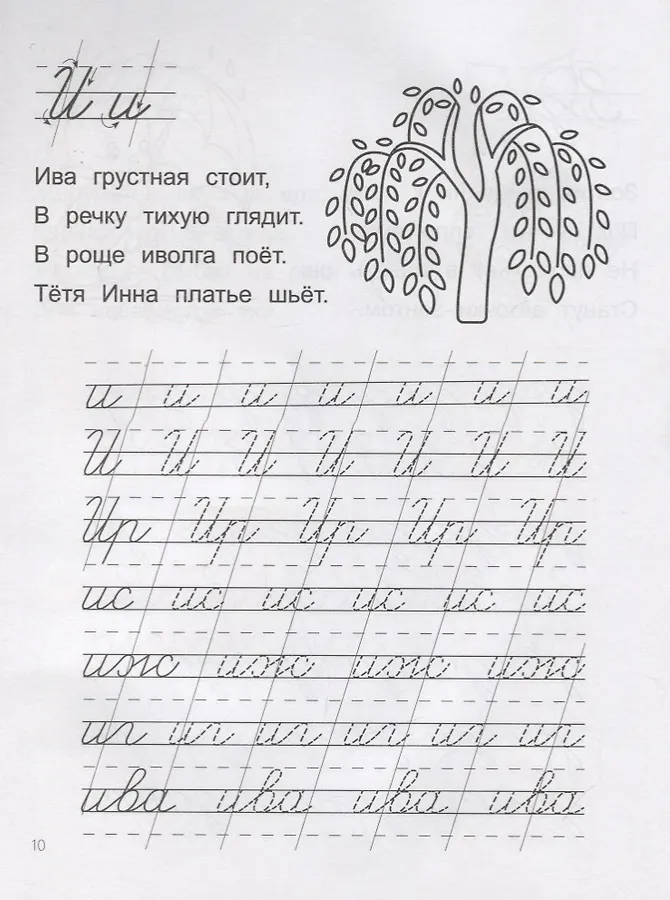 И и
Ива грустная стоит,
В речку тихую глядит.
В роще иволга поёт.
Тётя Инна платье шьёт.
и и и и и и и
И И И И И И И
Ир Ир Ир Ир Ир
ис ис ис ис ис ис
иж иж иж иж
иг иг иг иг иг иг
ива ива ива ива
10